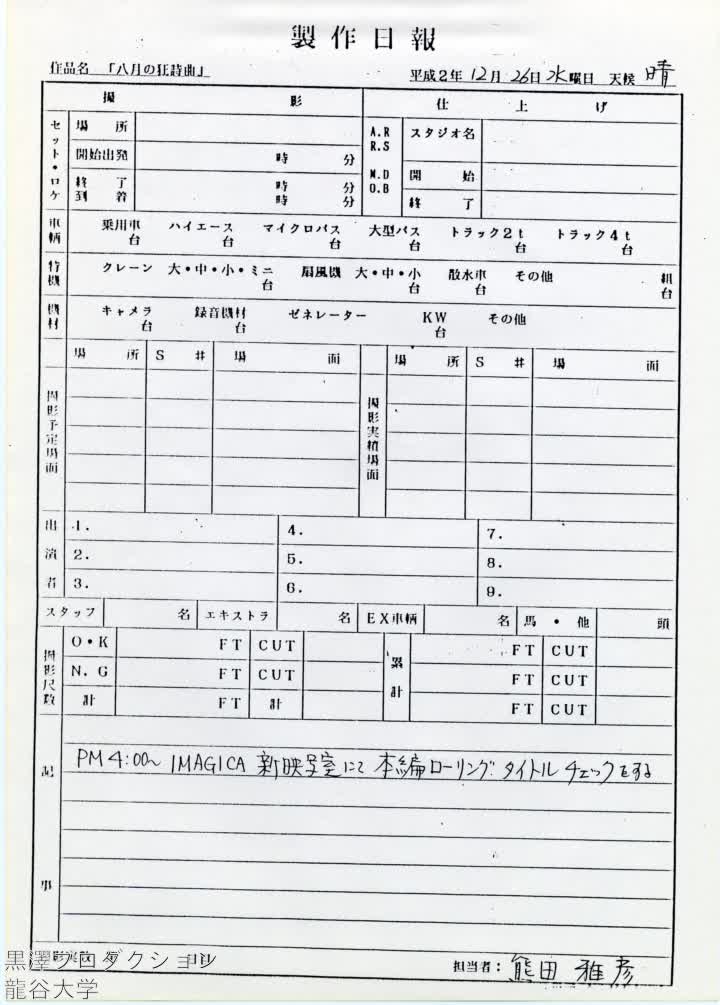 製作日報
作品名 「八月の狂詩曲」 平成2年12月26日水曜日 天候 晴
撮影 仕上げ
セット・ロケ 場所 A.R R.S M.D O.B スタジオ名
開始出発 時 分 開始
終了 時 分 終了
到着 時 分
車輌 乗用車 台 ハイエース 台 マイクロバス 台 大型バス 台 トラック2t 台 トラック4t 台
特機 クレーン 大・中・小・ミニ 台 扇風機 大・中・小 台 散水車 台 その他 組 台
機材 キャメラ 台 録音機材 台 ゼネレーター KW 台 その他
撮影予定場面 場所 S # 場面 撮影実績場面 場所 S # 場面
出演者 1. 4. 7.
2. 5. 8.
3. 6. 9.
スタッフ 名 エキストラ 名 EX車輌 名 馬・他 頭
撮影尺数 O・K FT CUT 累計 FT CUT
N.G FT CUT FT CUT
計 FT 計 FT CUT
記事 PM4:00〜 IMAGICA 新映写室にて 本編ローリングタイトルチェックをする
担当者: 熊田 雅彦
黒澤プロダクション
龍谷大学